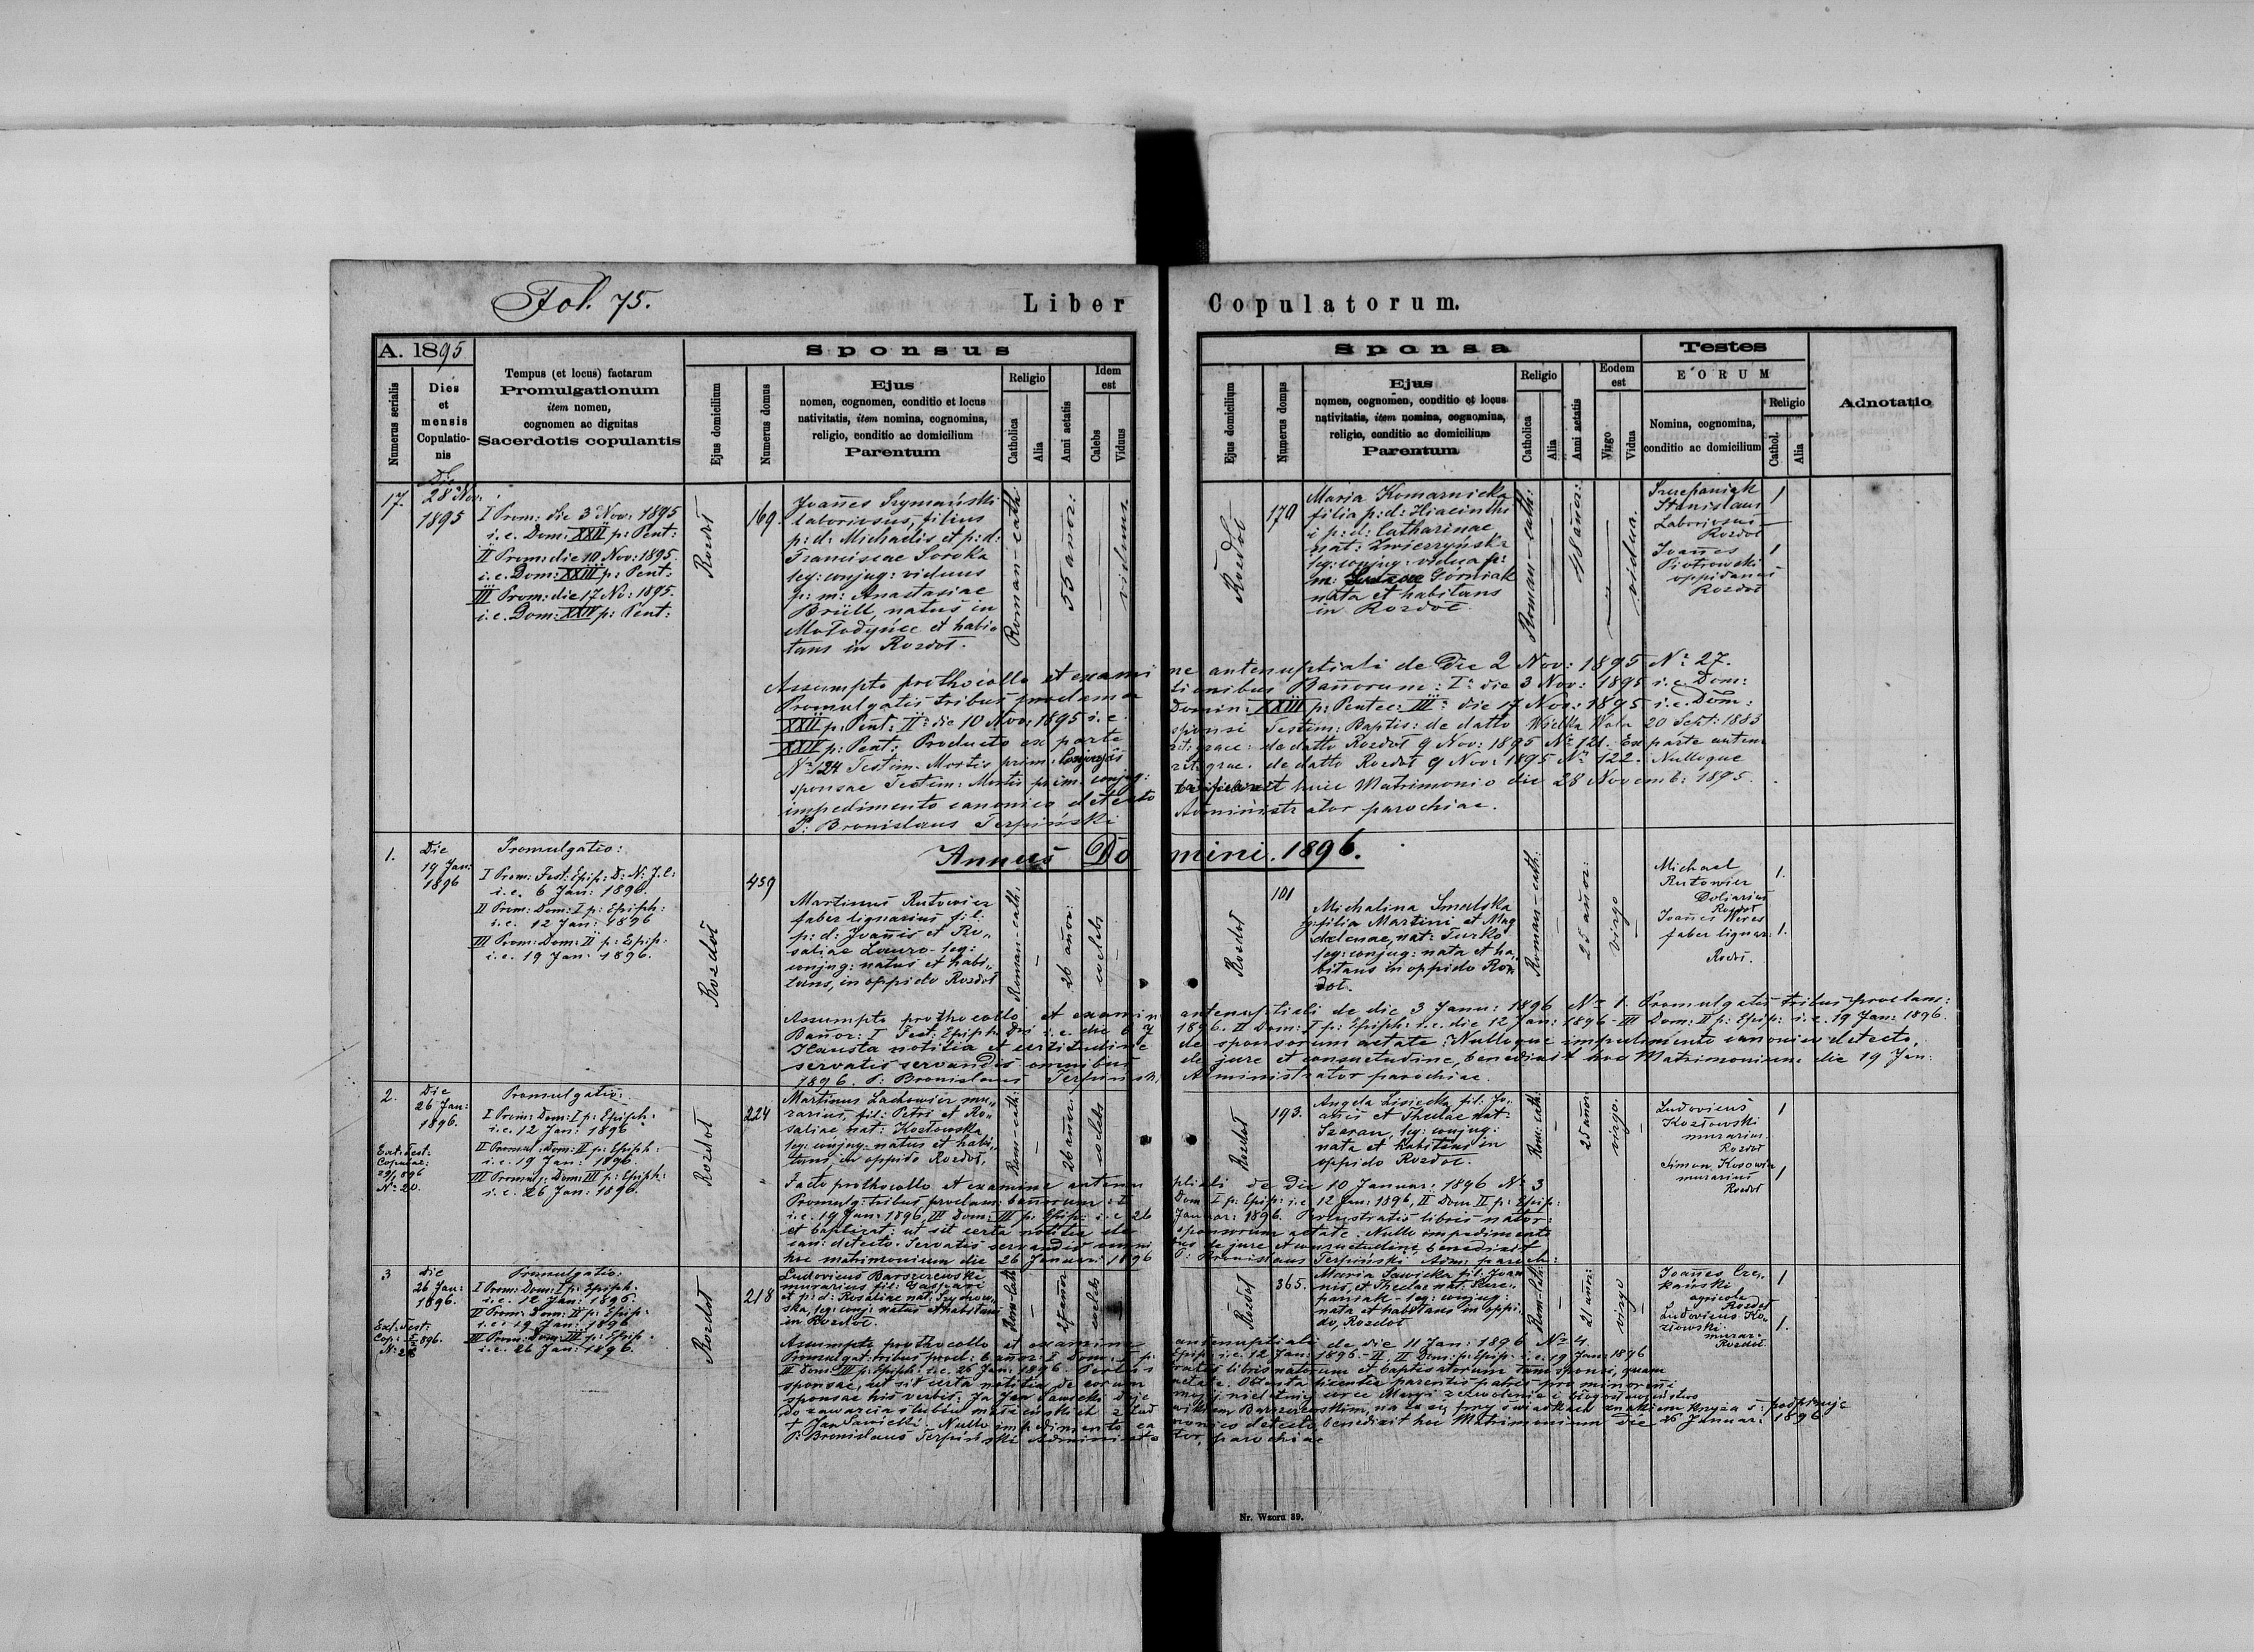 Fol. 75.
Liber Copulatorum.
A. 1895
Numerus serialis
Dies
et
mensis
Copulatio-
nis
Tempus (et locus) factarum
Promulgationum
item nomen,
cognomen ac dignitas
Sacerdotis copulantis
Sponsus
Ejus domicilium
Numerus domus
Ejus
nomen, cognomen, conditio et locus
nativitatis, item nomina, cognomina,
religio, conditio ac domicilium
Parentum
Religio
Catholica
Alia
Anni aetatis
Idem
est
Calebs
Viduus
Sponsa
Ejus domicilium
Numerus domus
Ejus
nomen, cognomen, conditio et locus
nativitatis, item nomina, cognomina,
religio, conditio ac domicilium
Parentum
Religio
Catholica
Alia
Anni aetatis
Eodem
est
Virgo
Vidua
Testes
EORUM
Nomina, cognomina,
conditio ac domicilium
Religio
Cathol.
Alia
Adnotatio
17.
Die
28 Nov.
1895
I Prom: die 3 Nov: 1895
i.e. Dom: XXII p: Pent:
II Prom: die 10 Nov: 1895.
i.e. Dom: XXIII p: Pent:
III Prom: die 17 No: 1895.
i.e. Dom: XXIV p: Pent:
Rozdoł
169.
Joañes Szymański
laboriosus, filius
p: d: Michaelis et p: d:
Franciscae Soroka
leg: conjug: viduus
p: m: Anastasiae
Brüll, natus in
Mołodyńce et habi-
tans in Rozdoł.
Roman-cath:
55 añor:
viduus.
Rozdoł
170
Maria Komarnicka
filia p: d: Hiacinthi
i p: d: Catharinae
nat: Zwierzyńska
leg: conjug: vidua p:
m: Górniak
nata et habitans
in Rozdoł.
Roman-cath:
añor:
vidua.
Szczepaniak
Stanislaus
Laboriosus
Rozdoł
1
Joañes
Piotrowski
oppidanus
Rozdoł
1
Assumpto prothocollo et examine antenuptiali de die 2 Nov: 1895 Nº 27.
Promulgatis tribus proclamationibus Bañorum: I: die 3 Nov: 1895 i.e. Dom:
XXII p: Pent: II: die 10 Nov: 1895 i.e. Domin: XXIII p: Pentec: III: die 17 Nov: 1895 i.e. Dom:
XXIV p: Pent: Producto ex parte sponsi Testim: Baptis: de datto Wielka Wola 20 Sept: 1885
Nº 124 Testim. Mortis prim. Conjugis rit: graec: de datto Rozdoł 9 Nov: 1895 Nº 121. Ex parte autem
sponsae Testim: Mortis prim. conjug: rit: graec. de datto Rozdoł 9 Nov: 1895 Nº 122. Nulloque
impedimento canonico detecto huic Matrimonio die 28 Novemb: 1895.
P: Bronislaus Terpiński Administrator parochiae.
Annus Domini. 1896.
1.
Die
19 Jan:
1896
Promulgatio:
I Prom: Fest: Epip: D: N: J. C:
i.e. 6 Jan: 1896.
II Prom: Dom: I p: Epiph:
i.e. 12 Jan: 1896
III Prom: Dom: II p: Epip:
i.e. 19 Jan: 1896.
Rozdoł
459
Martinus Rutowicz
faber lignarius fil:
p: d: Joañis et Ro-
saliae Lauro- leg:
conjug: natus et habi-
tans, in oppido Rozdoł
Roman-cath:
26 añor:
caelebs
Rozdoł
101
Michalina Smulska
filia Martini et Mag
dalenae, nat: Turko
leg: conjug: nata et ha-
bitans in oppido Roz-
doł.
Roman-cath:
25 añor:
virgo
Michael
Rutowicz
Doliarius
Rozdoł
1.
Joañes Weres
faber lignar:
Rozdoł.
1.
Assumpto prothocollo et examin antenuptiali de die 3 Janu: 1896 Nº 1. Promulgatis tribus proclam:
Bañor: I Fest: Epiph: Dni i.e. die 6 J 1896. II Dom: I p: Epiph: i.e. die 12 Jan: 1896 - III Dom: II p: Epip: i.e. 19 Jan: 1896.
Hausta notitia et certitudine de sponsorum aetate: Nulloque impedimento canonico detecto,
servatis servandis omnibus de jure et consuetudine, benedixit hoc Matrimonium die 19 Jan:
1896. P: Bronislaus Terpiński, Administrator parochiae.
2.
Die
26 Jan:
1896.
Ext: Test:
Copulat:
29/1 896
Nº 20.
Promulgatio:
I Prom: Dom: I p: Epiph:
i.e. 12 Jan: 1896
II Promul: Dom: II p: Epiph:
i.e. 19 Jan: 1896
III Promul: Dom: III p: Epiph:
i.e. 26 Jan: 1896.
Rozdoł
224
Martinus Lachowicz mu-
rarius, fil: Petri et Ro-
saliae, nat: Kozłowska
leg: conjug: natus et habi-
tans, in oppido Rozdoł,
Rom-cath:
26 añor:
caelebs
Rozdoł
193.
Angela Lisiecka, fil: Jo-
añis et Theclae nat:
Szaran, leg: conjug:
nata et habitans in
oppido Rozdoł.
Rom: cath.
25 añor:
virgo.
Ludovicus
Kozłowski
murarius
Rozdoł
1
Simon Kosowicz
murarius
Rozdoł
1
Facto prothocollo et examine antenuptiali de die 10 Januar: 1896 Nº 3
Promulg: tribus proclam: bañorum: I Dom I p: Epip: i.e. 12 Jan: 1896, II Dom II p: Epip:
i.e. 19 Jan: 1896, III Dom: III p: Epip: i.e. 26 Januar: 1896. Perlustratis libris nator:
et baptizat: ut sit certa notitia de sponsorum aetate. Nullo impedimento
can: detecto. Servatis servandis omnibus de jure et consuetudine, benedixit
hoc matrimonium die 26 Januar: 1896 P: Bronislaus Terpiński Adm: paroch:
3
die
26 Jan:
1896.
Ext: Test:
Cop: 896.
Nº 28
Promulgatio:
I Prom: Dom: I p: Epiph:
i.e. 12 Jan: 1896.
II Prom: Dom: II p: Epip:
i.e. 19 Jan: 1896
III Prom: Dom: III p: Epip.
i.e. 26 Jan: 1896.
Rozdoł
218
Ludovicus Barszczewski
murarius fil: Gaspari
et p: d: Rosaliae nat:
ska, leg: conj: natus et habitans
in Rozdoł.
Rom-cath
27 añor
caelebs
Rozdoł
365.
Maria Sawicka fil: Joan
nis, et Theclae nat:
paniak - leg: conjug:
nata et habitans in oppi-
do, Rozdoł
Rom-cath:
21 añor:
virgo
Joañes Cze-
kański
agricola
Rozdoł
1
Ludovicus Ko-
złowski
murar-
Rozdoł.
1.
Assumpto prothocollo et examine antenuptiali de die 11 Jan: 1896 Nº 4.
Promulgat: tribus procl: bañor: I Dom: I p: Epip: i.e. 12 Jan: 1896 - II, II Dom: p: Epip: i.e. 19 Jan: 1896
III Dom: III p: Epiph: i.e. 26 Jan: 1896. Perlustratis libris natorum et baptisatorum tam sponsi, quam
sponsae, ut sit certa notitia de eorum aetate. Obtenta licentia parentis patris pro minorenni
sponsae his verbis: Ja Jan Sawicki daję mojej nieletniej córce Maryi zezwolenie i błogosławieństwo
do zawarcia ślubów małżeńskich z Ludwikiem Barszczewskim, na co się przy świadkach znakiem krzyża ś: podpisuję
+ Jan Sawicki. Nullo impedimento canonico detecto, benedixit hoc Matrimonium die 26 Januar: 1896
P: Bronislaus Terpiński Administrator, parochiae
Nr. Wzoru 39.